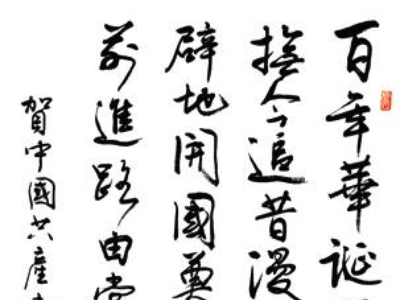 百年華誕
撫今追昔漫
辟地開國奠
前進路由
賀中國共產